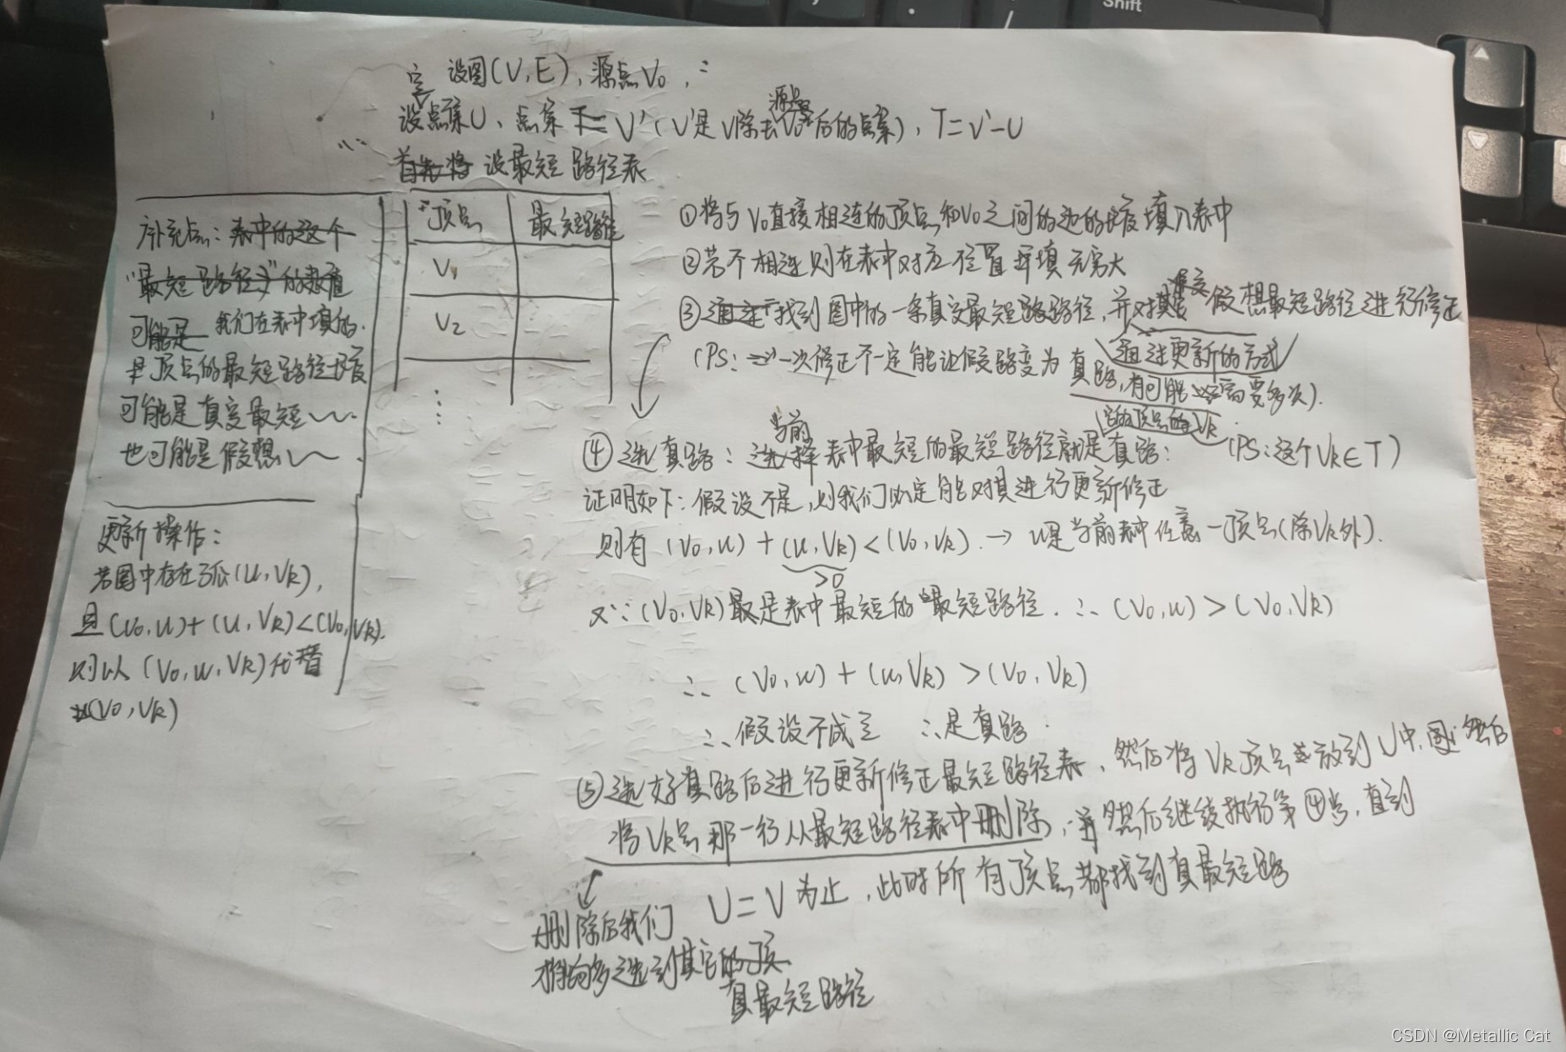 Shift
定 设图(V,E),源点V₀,:
设点集U、点集T=V'(V'是V除去源点V₀后的点集),T=V'-U
首先将 设最短路径表
补充点:表中的这个
"最短路径"的数值
可能是 我们在表中填的
是顶点的最短路径长度
可能是真实最短
也可能是假想
更新操作:
若图中存在弧(u,Vk),
且(V₀,u)+(u,Vk)<(V₀,Vk).
则以(V₀,u,Vk)代替
(V₀,Vk)
顶点 最短路径
V₁
V₂
①将与V₀直接相连的顶点和V₀之间的边的长度填入表中
②若不相连则在表中对应位置填无穷大
③找到图中的一条真实最短路径,并对其 假想最短路径进行修正
通过更新的方式
(PS:一次修正不一定能让假路变为真路,有可能需要多次).
当前
的顶点的Vk
④选真路:选择表中最短的最短路径就是真路: (PS:这个Vk∈T)
证明如下:假设不是,则我们肯定能对其进行更新修正
则有 (V₀,u)+(u,Vk)<(V₀,Vk).→ u是当前表中任意一顶点(除Vk外).
>0
又∵(V₀,Vk)是表中最短的"最短路径.∴(V₀,u)>(V₀,Vk)
∴ (V₀,u)+(u,Vk)>(V₀,Vk)
∴假设不成立 ∴是真路.
⑤选好真路后进行更新修正最短路径表,然后将Vk顶点放到U中,然后
将Vk点那一行从最短路径表中删除,然后继续执行第④点,直到
U=V为止,此时所有顶点都找到真最短路
删除后我们
选到其它的顶
真最短路径
CSDN @Metallic Cat